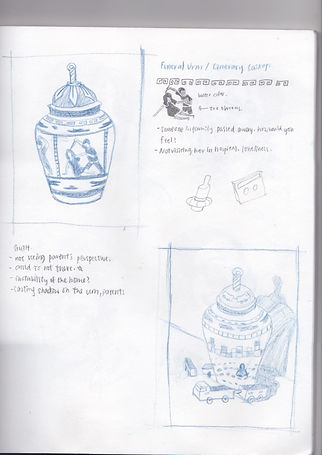 Funeral Urns / Cinerary Casket:
water color.
- Someone in family passed away. how would you
feel?
- Not visiting her in hospital. loneliness.
Guilt:
- not seeing parent's perspective.
- child is not there.
- instability of the home?
- Casting shadow on the urn, parents